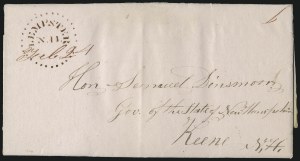 LEMPSTER
N.H.
6
Hon. Samuel Dinsmoor
Gov. of the State of New Hampshire
Keene
N.H.